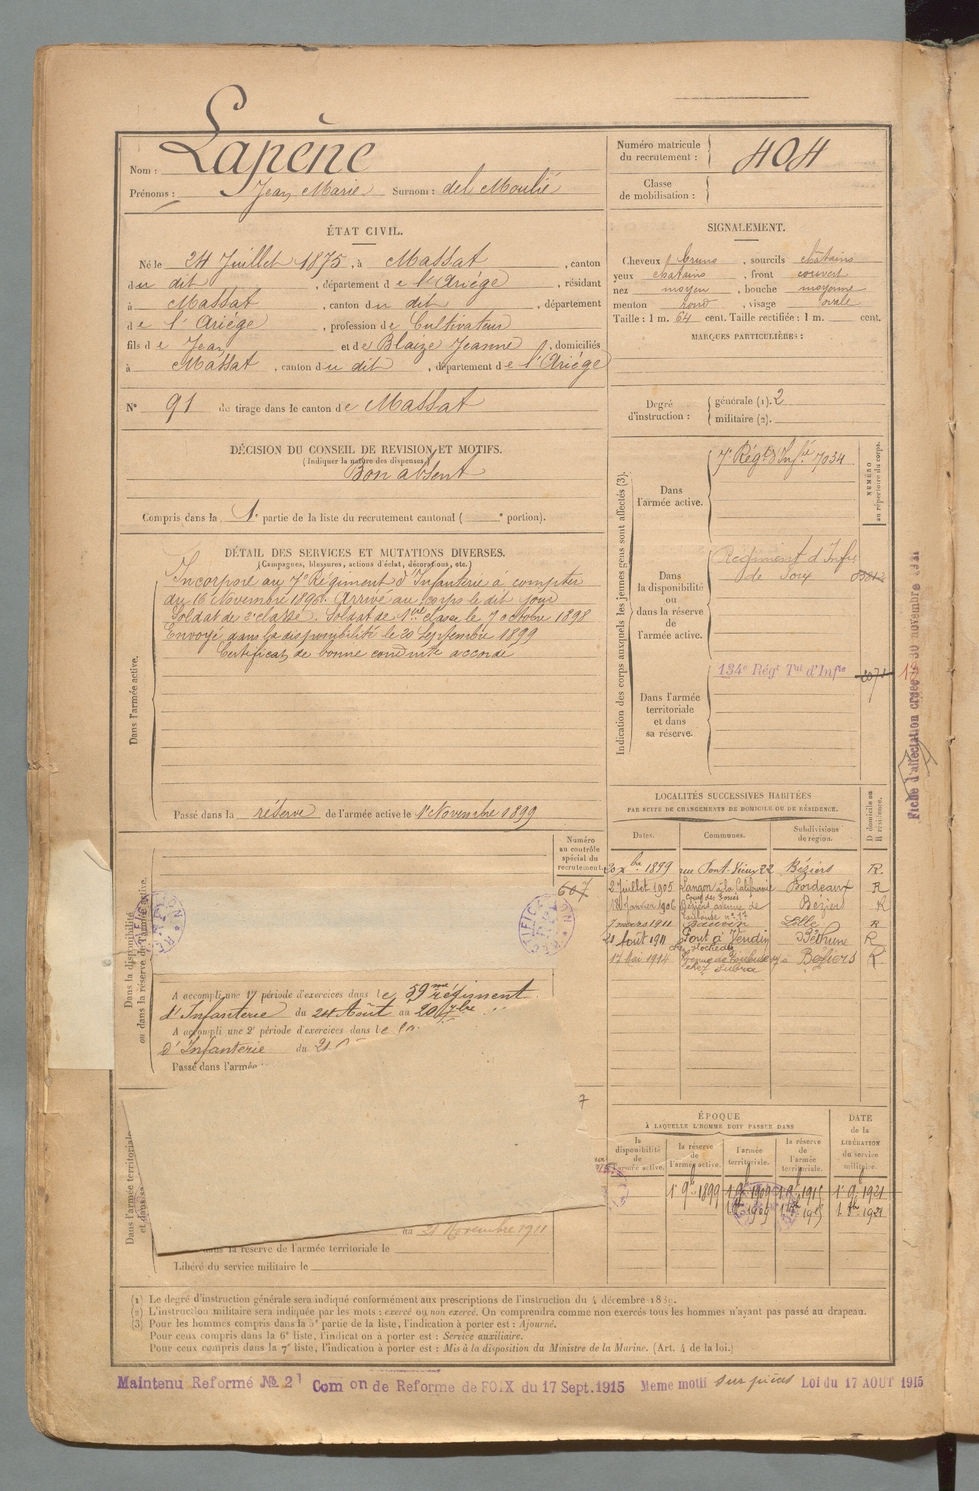 Nom : Lapène
Prénoms : Jean Marie Surnom : del Moulié
Numéro matricule du recrutement : 404
Classe de mobilisation :
ÉTAT CIVIL.
Né le 24 Juillet 1875, à Massat, canton
du dit, département de l'Ariége, résidant
à Massat, canton du dit, département
de l'Ariége, profession de Cultivateur
fils de Jean et de Blaize Jeanne, domiciliés
à Massat, canton du dit, département de l'Ariége
N° 91 de tirage dans le canton de Massat
SIGNALEMENT.
Cheveux bruns, sourcils chatains
yeux chatains, front couvert
nez moyen, bouche moyenne
menton rond, visage ovale
Taille : 1 m. 64 cent. Taille rectifiée : 1 m. cent.
MARQUES PARTICULIÈRES :
Degré d'instruction :
générale (1). 2
militaire (2).
DÉCISION DU CONSEIL DE REVISION ET MOTIFS.
(Indiquer la nature des dispenses.)
Bon absent
Compris dans la 1e partie de la liste du recrutement cantonal ( e portion).
DÉTAIL DES SERVICES ET MUTATIONS DIVERSES.
(Campagnes, blessures, actions d'éclat, décorations, etc.)
Dans l'armée active.
Incorporé au 7e Régiment d'Infanterie à compter
du 16 Novembre 1896. Arrivé au corps le dit jour
Soldat de 2e classe. Soldat de 1ère classe le 7 octobre 1898
Envoyé dans la disponibilité le 20 Septembre 1899
Certificat de bonne conduite accordé
Passé dans la réserve de l'armée active le 1er Novembre 1899
Indication des corps auxquels les jeunes gens sont affectés (3).
NUMÉRO au répertoire du corps.
Dans l'armée active.
7e Régt d'Infie 7034
Dans la disponibilité ou dans la réserve de l'armée active.
Régiment d'Infie
de Foix
Dans l'armée territoriale et dans sa réserve.
134e Régt Tal d'Infie
Fiche d'affectation créée 30 novembre
LOCALITÉS SUCCESSIVES HABITÉES
PAR SUITE DE CHANGEMENTS DE DOMICILE OU DE RÉSIDENCE.
Dates. Communes. Subdivisions de région. D domicile ou R résidence.
1899 rue Pont-Vieux 22 Béziers R.
2 Juillet 1905 Langon à la Californie Bordeaux R
Janvier 1906 Béziers avenue de Toulouse n° 17 Bézier R
7 mars 1911 Lille R
21 Août 1911 Pont à Vendin Béthune R
17 Mai 1914 Avenue de Toulouse Béziers R
Numéro au contrôle spécial du recrutement.
607
Dans la disponibilité ou dans la réserve de l'armée active.
A accompli une 1re période d'exercices dans le 59me régiment
d'Infanterie du 24 Août au 20 7bre
A accompli une 2e période d'exercices dans le
d'Infanterie du 21
Passé dans l'armée
Dans l'armée territoriale et dans sa
au 21 Novembre 1911
dans la réserve de l'armée territoriale le
Libéré du service militaire le
ÉPOQUE
À LAQUELLE L'HOMME DOIT PASSER DANS
la disponibilité de l'armée active. la réserve de l'armée active. l'armée territoriale. la réserve de l'armée territoriale.
DATE de la LIBÉRATION du service militaire.
1er 9b 1899 1er 9b 1909 1er 9b 1915 1er 9b 1921
(1) Le degré d'instruction générale sera indiqué conformément aux prescriptions de l'instruction du 4 décembre 1889.
(2) L'instruction militaire sera indiquée par les mots : exercé ou non exercé. On comprendra comme non exercés tous les hommes n'ayant pas passé au drapeau.
(3) Pour les hommes compris dans la 5e partie de la liste, l'indication à porter est : Ajourné.
Pour ceux compris dans la 6e liste, l'indication à porter est : Service auxiliaire.
Pour ceux compris dans la 7e liste, l'indication à porter est : Mis à la disposition du Ministre de la Marine. (Art. 4 de la loi.)
Maintenu Reformé No 2 Com on de Reforme de FOIX du 17 Sept. 1915 Meme motif sur pièces Loi du 17 AOUT 1915